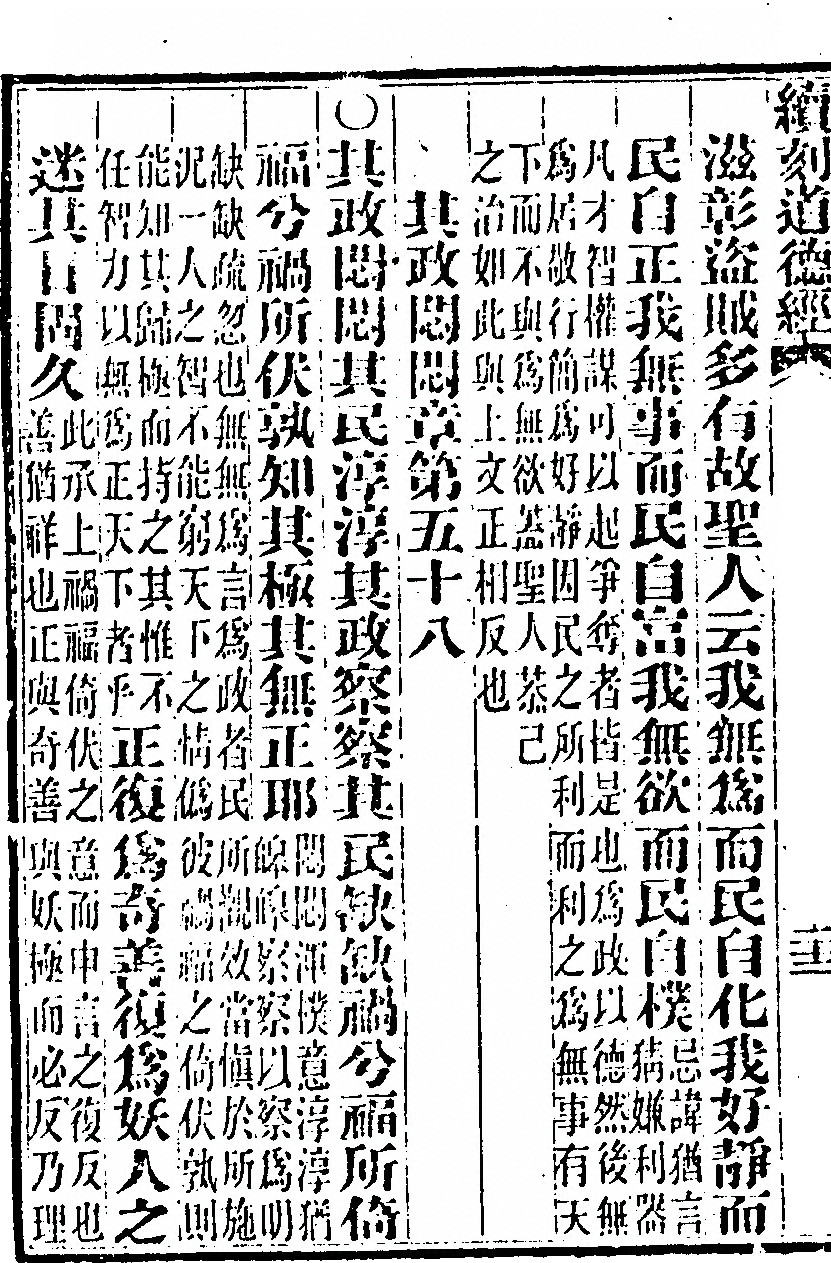 續刻道德經
滋彰盜賊多有故聖人云我無爲而民自化我好靜而
民自正我無事而民自富我無欲而民自樸
忌諱猶言
猜嫌利器
凡才智權謀可以起爭奪者皆是也爲政以德然後無
爲居敬行簡爲好靜因民之所利而利之爲無事有天
下而不與爲無欲蓋聖人恭己
之治如此與上文正相反也
其政悶悶章第五十八
〇其政悶悶其民淳淳其政察察其民缺缺禍兮福所倚
福兮禍所伏孰知其極其無正耶
悶悶渾樸意淳淳猶
皡皡察察以察爲明
缺缺疏忽也無無爲言爲政者民所觀效當愼於所施
泥一人之智不能窮天下之情僞彼禍福之倚伏孰則
能知其歸極而持之其惟不
任智力以無爲正天下者乎
正復爲奇善復爲妖人之
迷其日固久
此承上禍福倚伏之意而申言之復反也
善猶祥也正與奇善與妖極而必反乃理